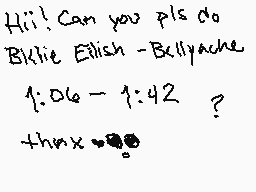 Hii! Can you pls do
Billie Eilish - Bellyache
1:06 - 1:42 ?
thnx